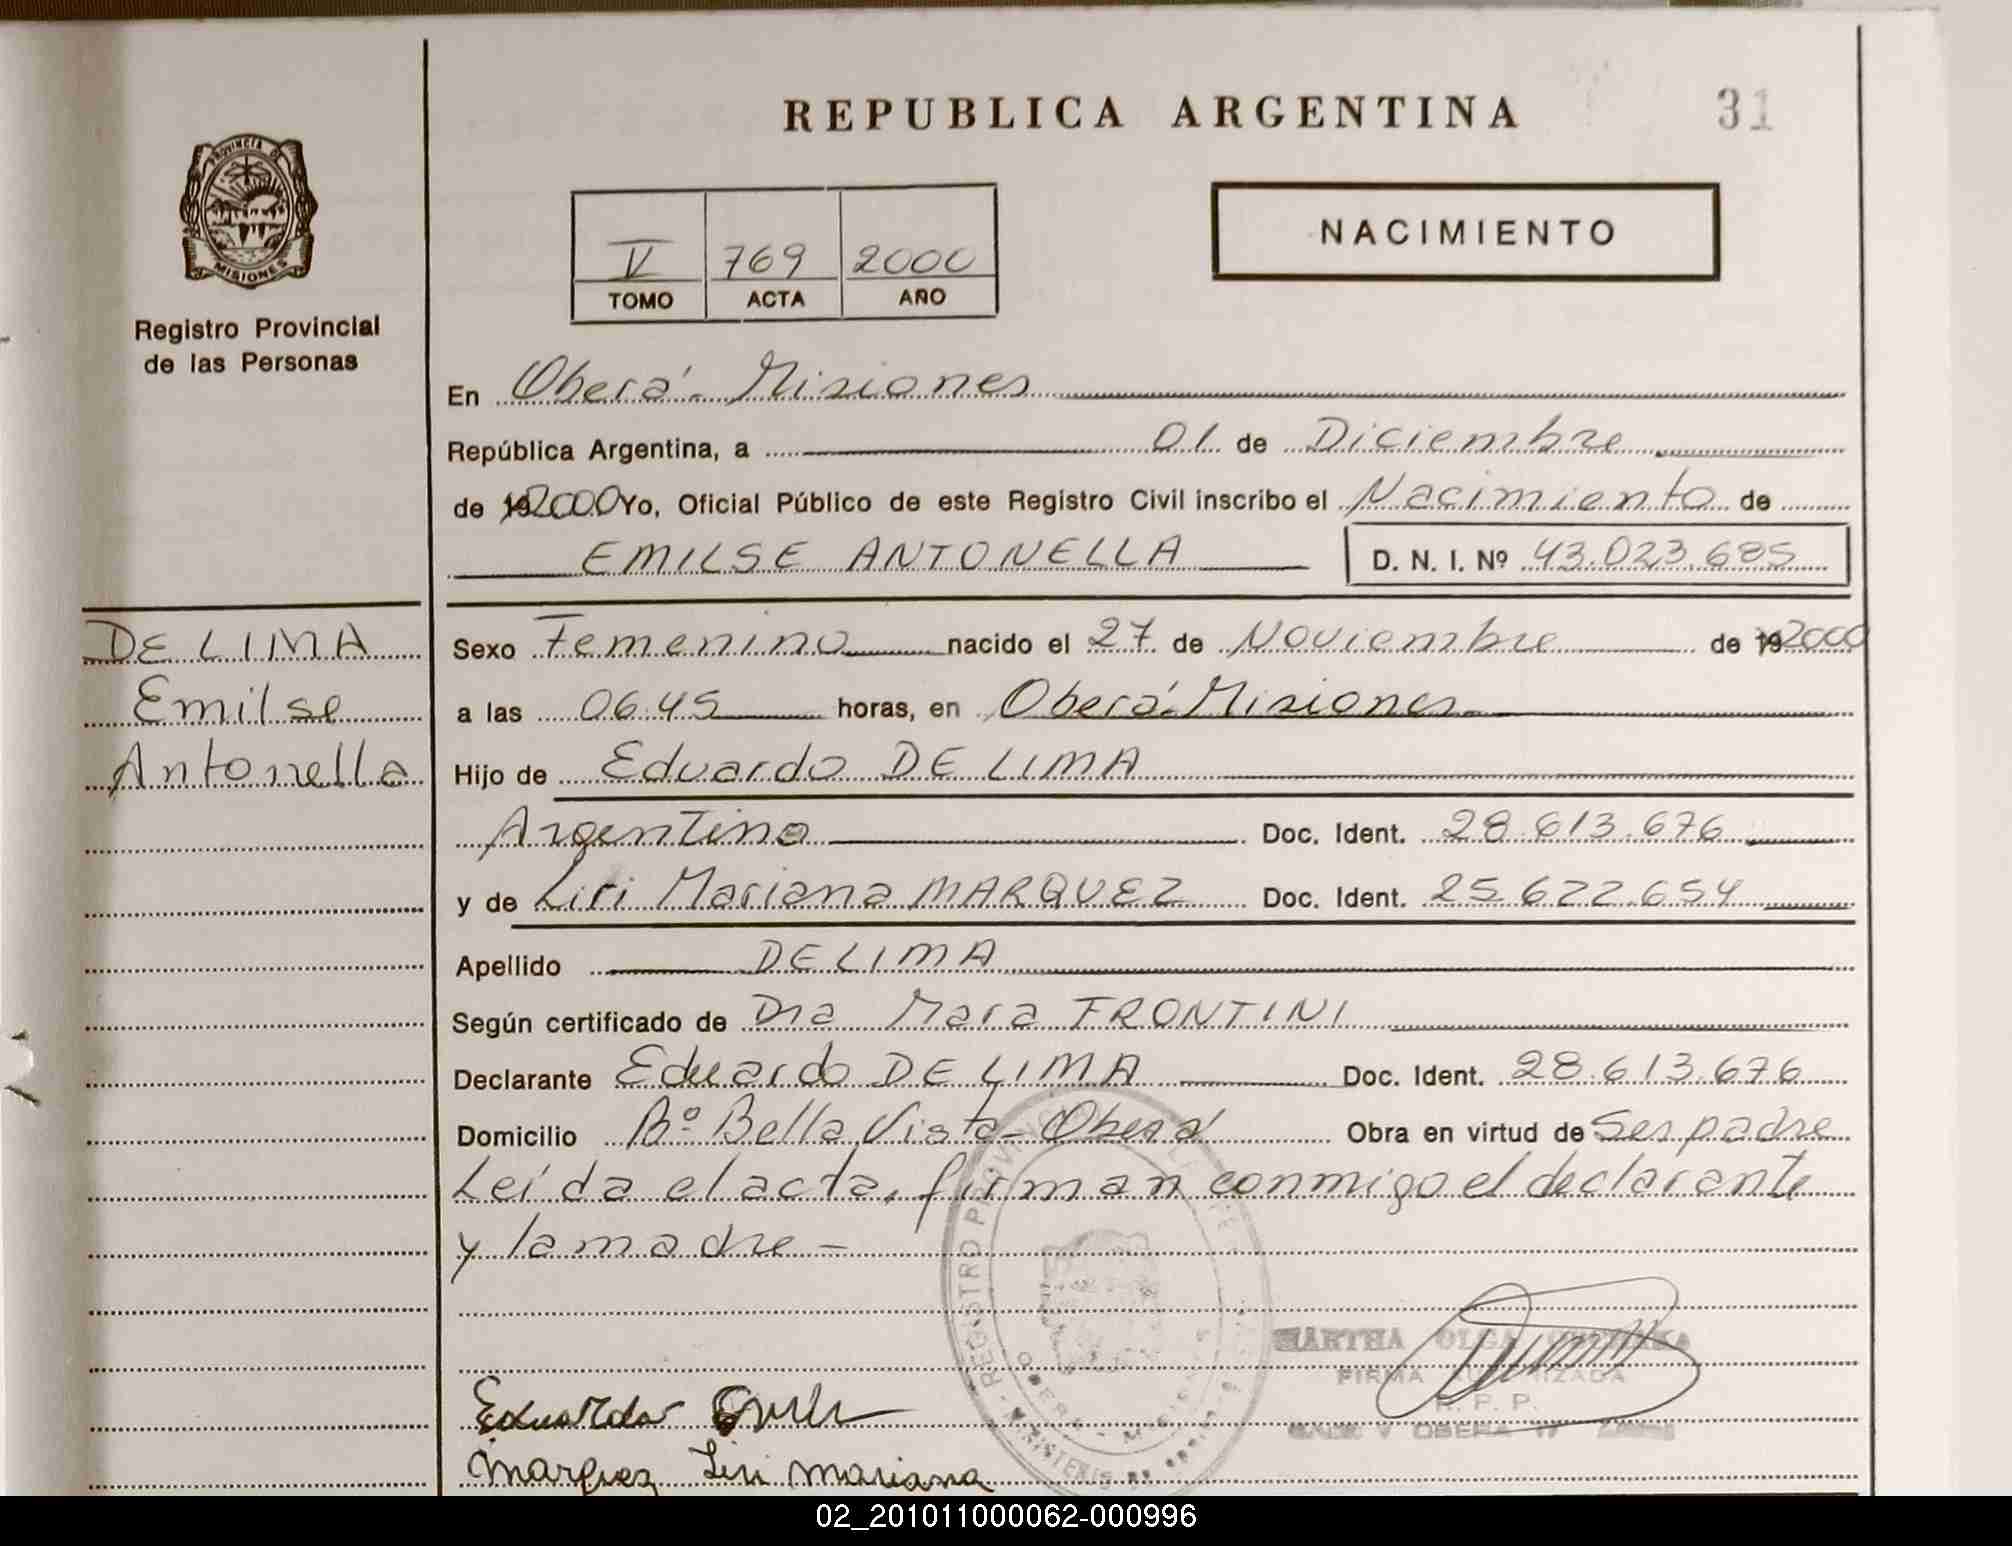 REPUBLICA ARGENTINA
31
PROVINCIA DE
MISIONES
Registro Provincial
de las Personas
V 769 2000
TOMO ACTA AÑO
NACIMIENTO
En Oberá - Misiones
República Argentina, a 01 de Diciembre
de 19 2000 Yo, Oficial Público de este Registro Civil inscribo el Nacimiento de
EMILSE ANTONELLA D. N. I. Nº 43.023.685
DE LIMA
Emilse
Antonella
Sexo Femenino nacido el 27 de Noviembre de 19 2000
a las 06.45 horas, en Oberá - Misiones
Hijo de Eduardo DE LIMA
Argentino Doc. Ident. 28.613.676
y de Liri Mariana MARQUEZ Doc. Ident. 25.622.654
Apellido DE LIMA
Según certificado de Dra Mara FRONTINI
Declarante Eduardo DE LIMA Doc. Ident. 28.613.676
Domicilio Bº Bella Vista - Oberá Obra en virtud de Ser padre
Leída el acta, firman conmigo el declarante
y la madre -
REGISTRO PROVINCIAL DE LAS
MARTHA OLGA
FIRMA AUTORIZADA
R. P. P.
OBERA
Eduardo
Marquez Liri Mariana
02_201011000062-000996